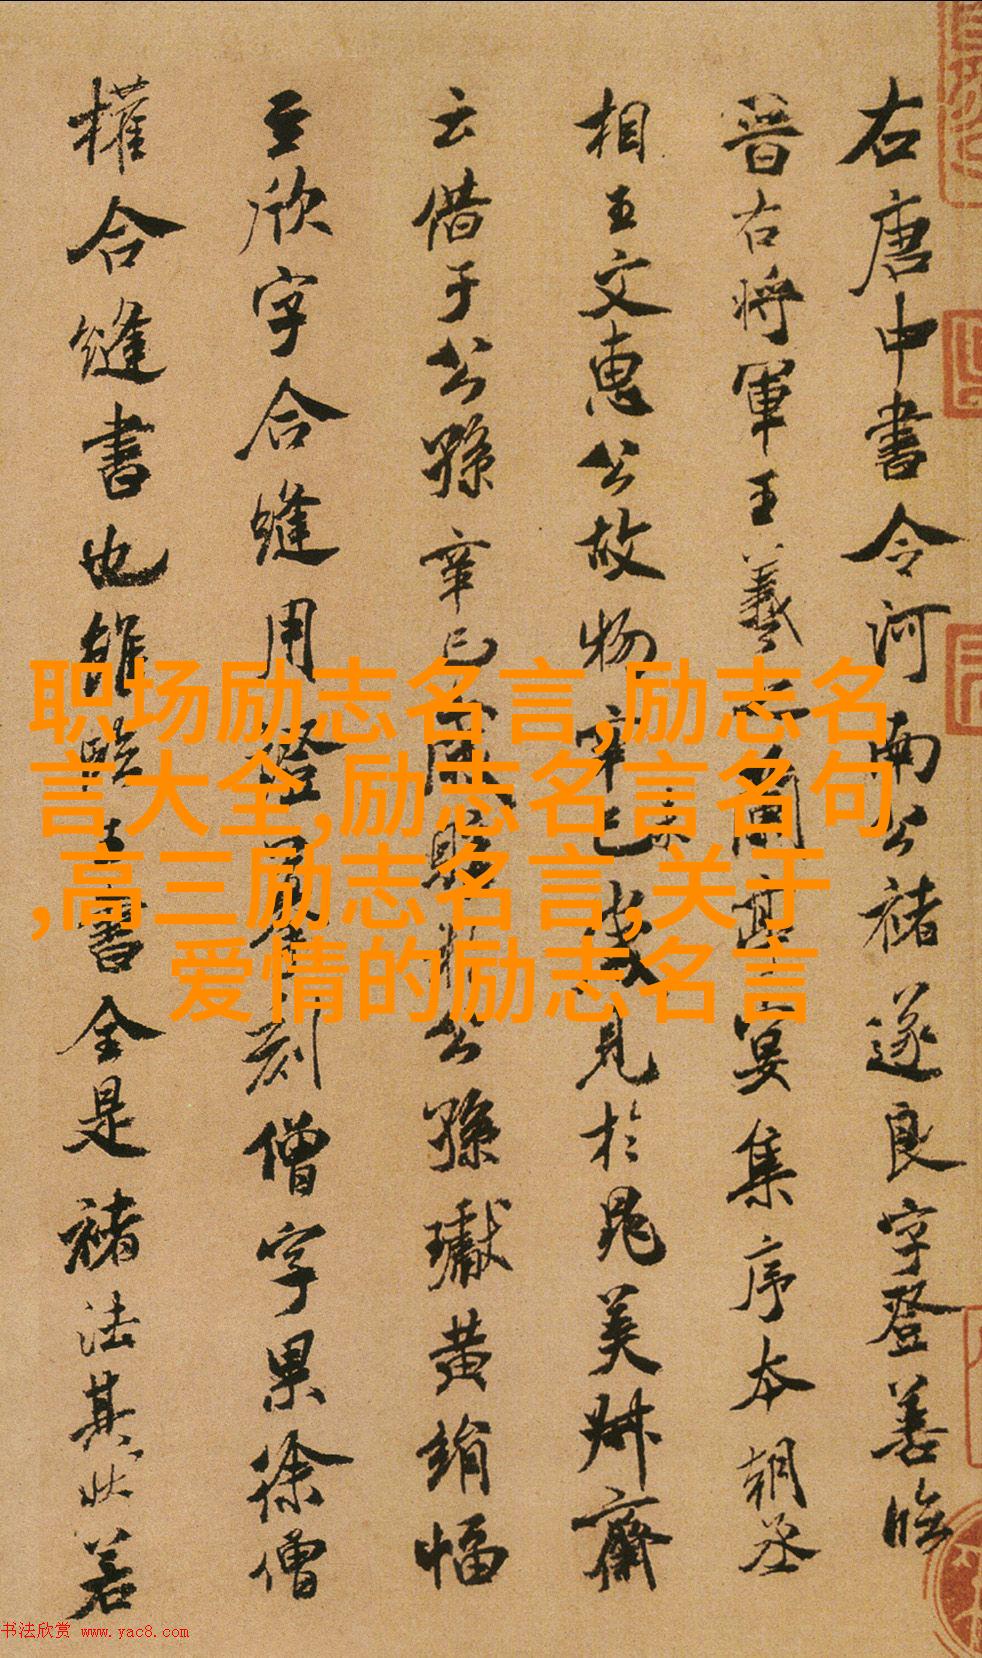 右唐中書令河南公褚遂良字登善臨
晉右將軍王羲之蘭亭宴集序本朝丞
相王文惠公故物辛巳未歲見於晁美叔齋
云借于公孫辛巳歲購於公孫瓛黃絹幅
至欣字合縫用證摹刻僧字果徐僧
權合縫書也雖臨王書全是褚法其狀若
职场励志名言,励志名
言大全,励志名言名句
,高三励志名言,关于
爱情的励志名言
书法欣赏 www.yac8.com